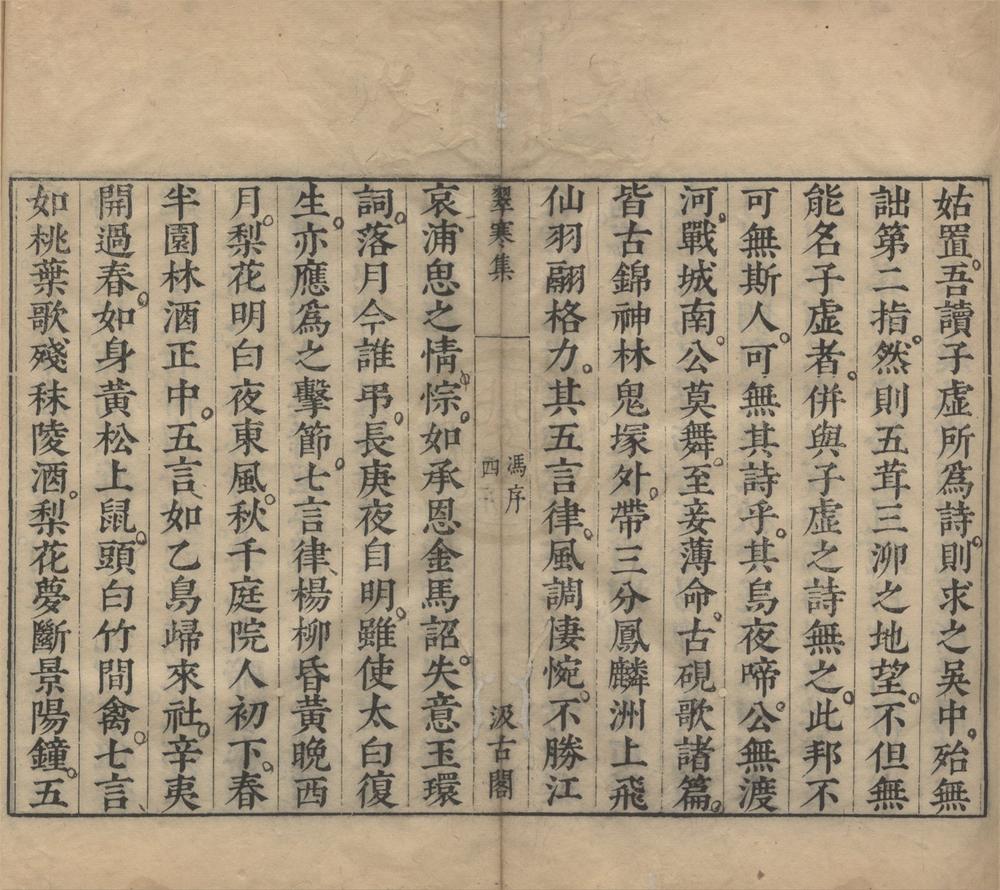 姑置。吾讀子虛所爲詩。則求之吳中。殆無
詘第二指。然則五茸三泖之地望。不但無
能名子虛者。併與子虛之詩無之。此邦不
可無斯人。可無其詩乎。其烏夜啼。公無渡
河。戰城南。公莫舞。至妾薄命。古硯歌諸篇。
皆古錦神林鬼塚外。帶三分鳳麟洲上飛
仙羽翮格力。其五言律。風調悽惋。不勝江
翠寒集
馮序
四
汲古閣
哀浦思之情悰。如承恩金馬詔。失意玉環
詞。落月今誰弔。長庚夜自明。雖使太白復
生。亦應爲之擊節。七言律、楊柳昏黃晚西
月。梨花明白夜東風。秋千庭院人初下。春
半園林酒正中。五言、如乙鳥歸來社。辛夷
開過春。如身黃松上鼠。頭白竹間禽。七言、
如桃葉歌殘秣陵酒。梨花夢斷景陽鐘。五